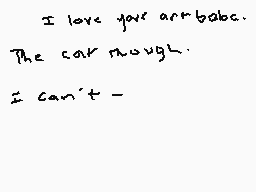 I love your art baba.
The cat though.
I can't -